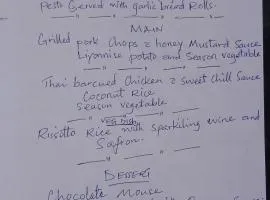 Pesto Served with garlic bread Rolls.
MAIN
Grilled pork Chops & honey Mustard Sauce
Liyonnise potato and Season vegetable
Thai barcued Chicken & Sweet Chill Sauce
Coconut Rice
Season vegetable
VEG DISH
Risotto Rice with sparkiling wine and
Safron.
DESSERT
Chocolate Mouse